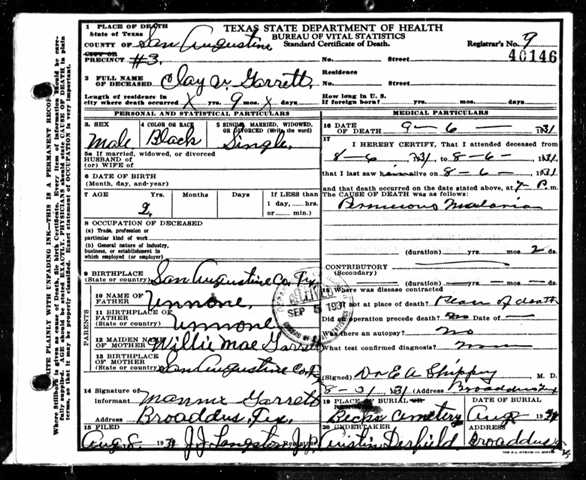 1 PLACE OF DEATH
State of Texas
TEXAS STATE DEPARTMENT OF HEALTH
BUREAU OF VITAL STATISTICS
Standard Certificate of Death.
COUNTY OF San Augustine
Registrar's No. 9
CITY OR
PRECINCT #3. No. Street
40146
2 FULL NAME OF DECEASED Clay V. Garrett
Residence
No. Street
Length of residence in city where death occurred X yrs. 9 mos. X days
How long in U. S. if foreign born? yrs. mos. days
PERSONAL AND STATISTICAL PARTICULARS
MEDICAL PARTICULARS
3. SEX Male
4 COLOR OR RACE Black
5 SINGLE, MARRIED, WIDOWED, OR DIVORCED (Write the word) Single
16 DATE OF DEATH 9-6-1931
5a If married, widowed, or divorced
HUSBAND OF
(or) WIFE OF
17 I HEREBY CERTIFY, That I attended deceased from
8-6-1931, to 8-6-1931.
that I last saw alive on 8-6-1931
6 DATE OF BIRTH
(Month, day, and year)
and that death occurred on the date stated above, at 7 P.m.
The CAUSE OF DEATH was as follows:
7 AGE Years Months Days If LESS than 1 day, hrs. or min.
9
Malaria
8 OCCUPATION OF DECEASED
(a) Trade, profession or particular kind of work
(b) General nature of industry, business, or establishment in which employed (or employer)
(duration) yrs. mos. 2 ds.
CONTRIBUTORY
(Secondary)
(duration) yrs. mos. ds.
9 BIRTHPLACE San Augustine Co. Tx
(State or country)
18 Where was disease contracted
if not at place of death? Place of death
10 NAME OF FATHER Unnone
SEP 5 1931
Did an operation precede death? No Date of
11 BIRTHPLACE OF FATHER (State or country) Unnone
Was there an autopsy? No
12 MAIDEN NAME OF MOTHER Willie Mae Garrett
What test confirmed diagnosis?
13 BIRTHPLACE OF MOTHER (State or country) San Augustine Co.
PARENTS
(Signed) Dr. E A Shippy M. D.
8-31-31 (Address) Broaddus Tx
14 Signature of Informant Mannie Garrett
Address Broaddus, Tx.
19 PLACE OF BURIAL Cemetery
DATE OF BURIAL Aug 1931
15 FILED
Aug. 8 1931 J.J. Langston J.P.
20 UNDERTAKER
Address Broaddus